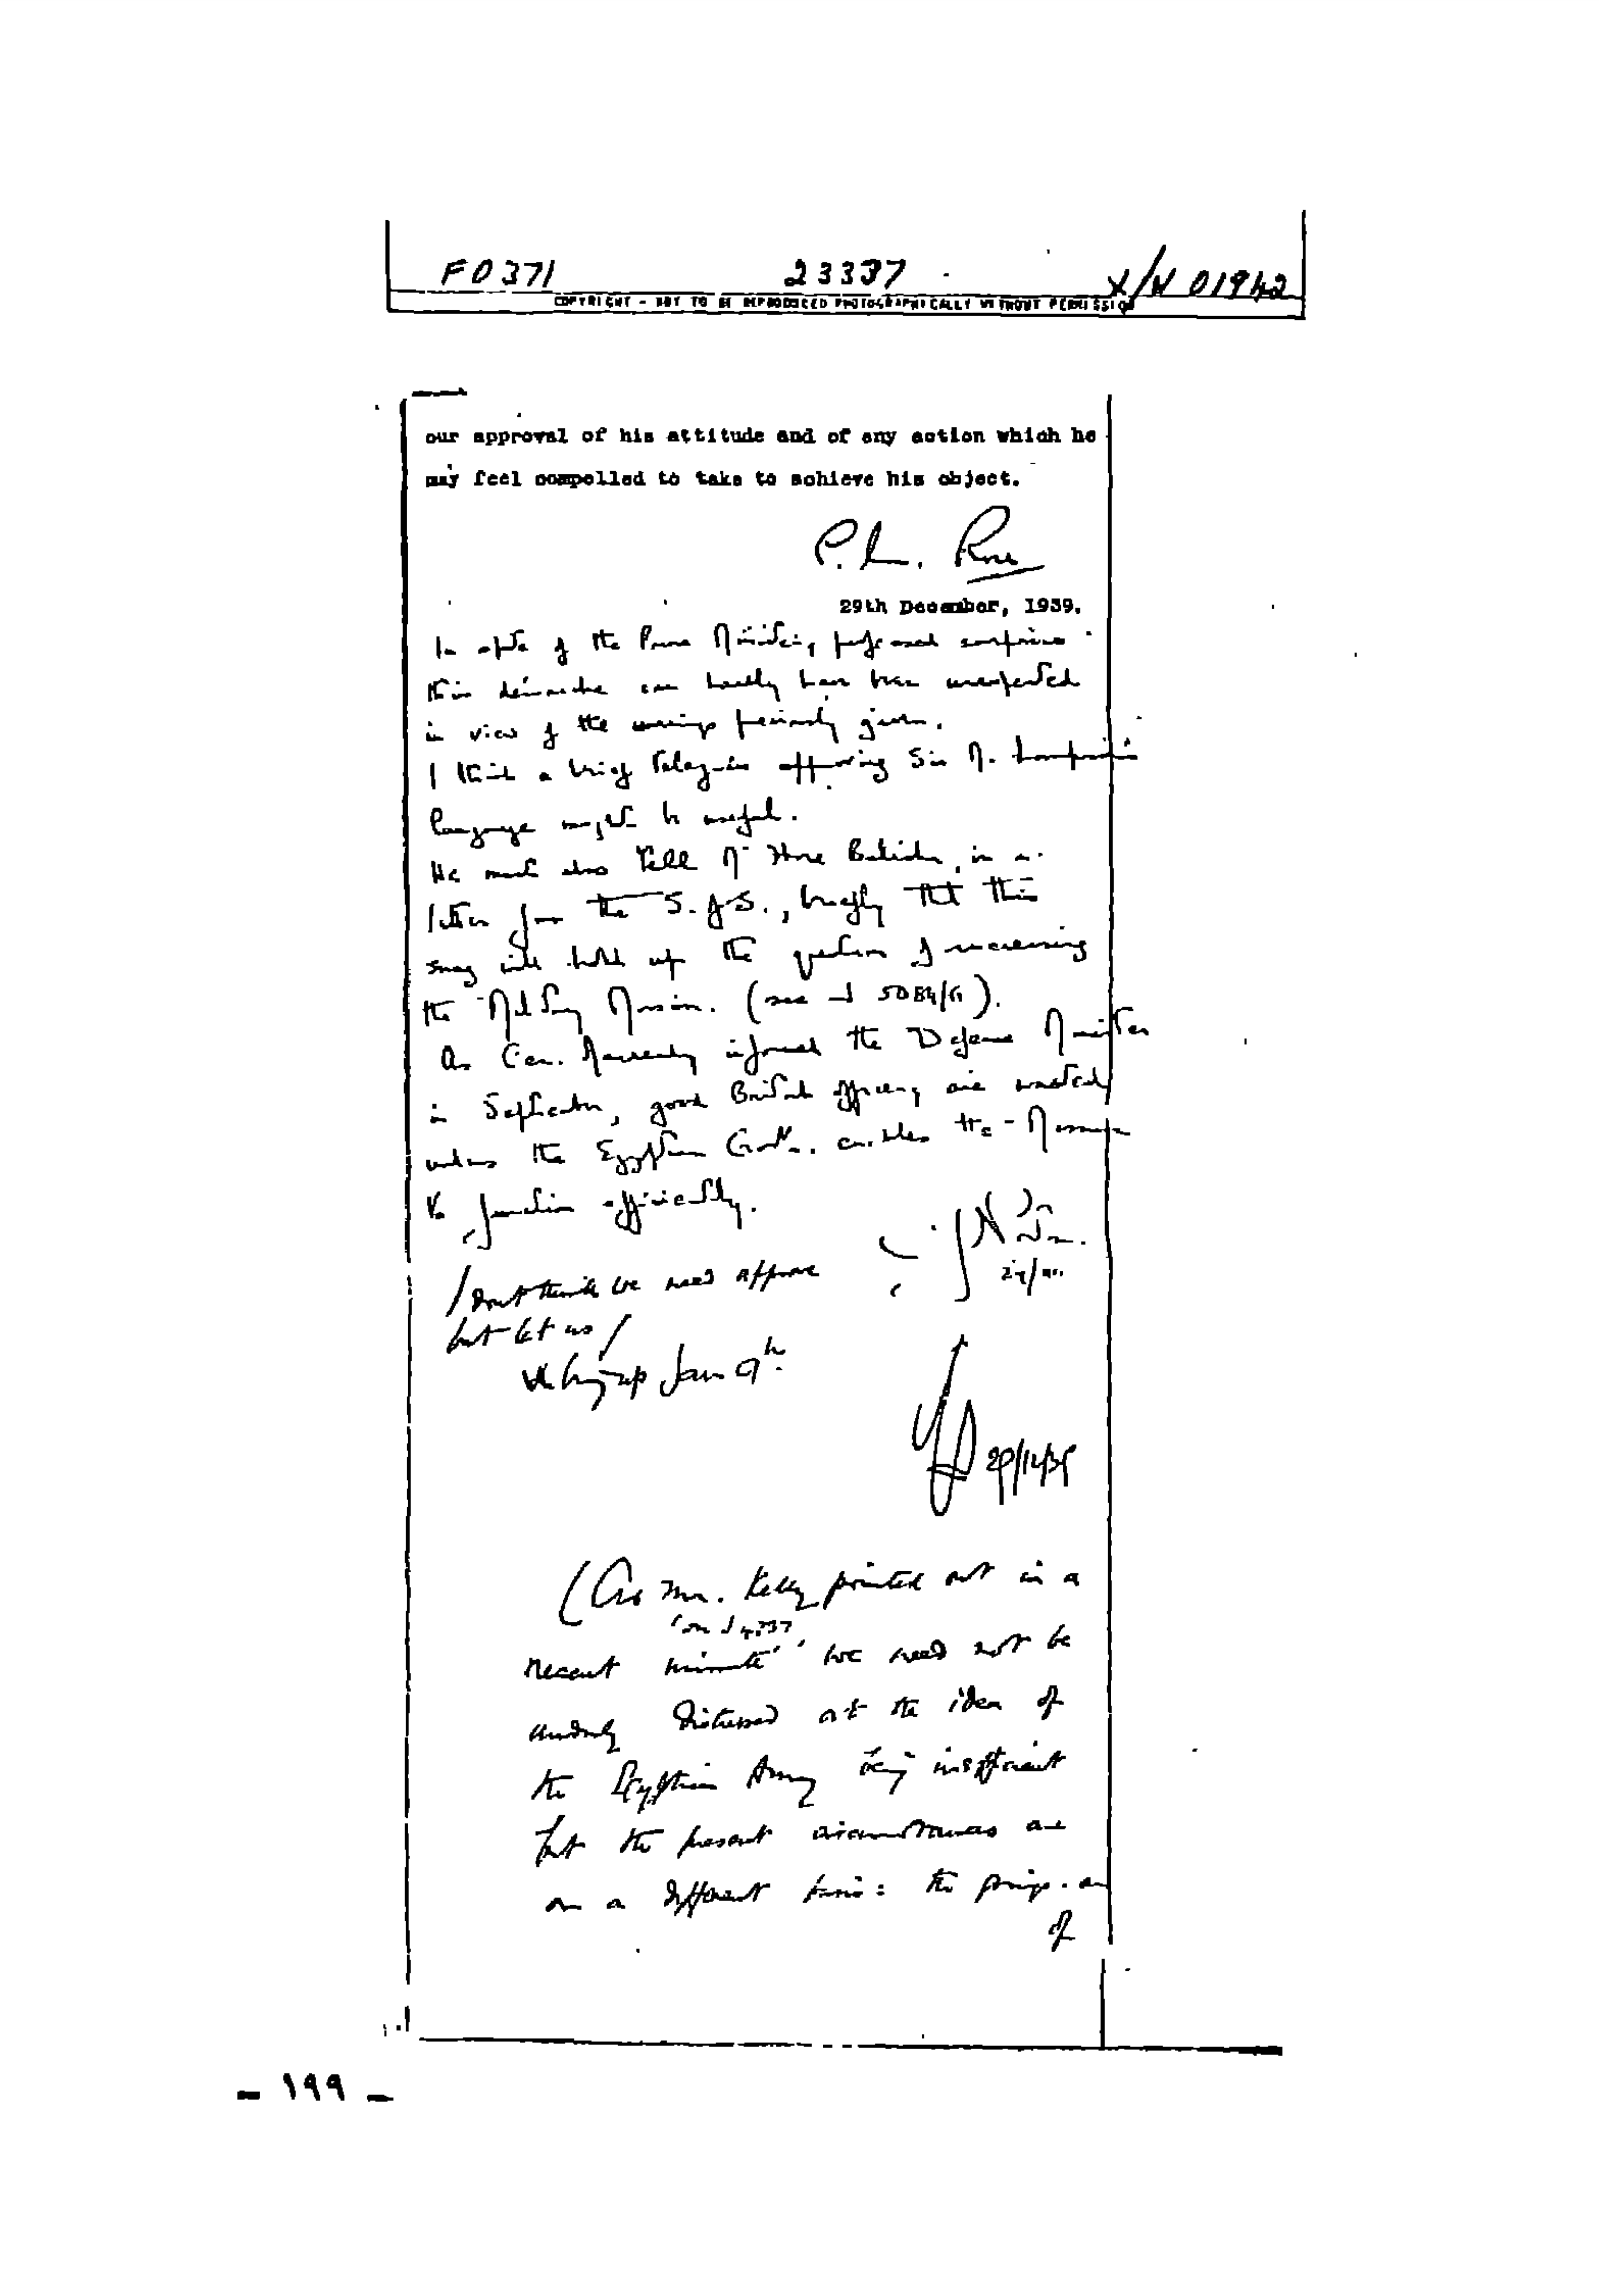 FO 371 23337 X/N 01942
COPYRIGHT - NOT TO BE REPRODUCED PHOTOGRAPHICALLY WITHOUT PERMISSION
our approval of his attitude and of any action which he
may feel compelled to take to achieve his object.
P.L. Rose
29th December, 1939.
In spite of the Prime Minister's professed surprise
this démarche can hardly have been unexpected
in view of the warnings previously given.
I think a brief telegram approving Sir M. Lampson's
language might be useful.
We must also tell Mr Hore Belisha, in a
letter from the S. of S., briefly that this
snag will hold up the question of increasing
the Military Mission. (see J 5084/G).
As Gen. Macready informed the Defence Minister
in September, good British officers are wasted
unless the Egyptian Govt. enables the Mission
to function efficiently.
29/
I don't think we need approve
but let us /
bring up Jan 9th.
29/12/39
(As Mr. Kelly pointed out in a
on J
recent minute we need not be
unduly distressed at the idea of
the Egyptian Army being inefficient
but the present circumstances are
on a different basis: the
of
- ١٩٩ -